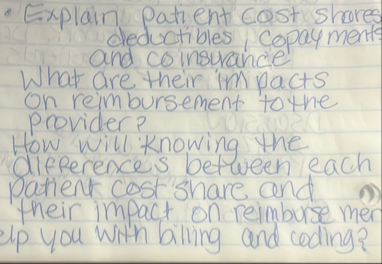 • Explain patient cost shares
deductibles, copayments
and coinsurance
What are their impacts
on reimbursement to the
provider?
How will knowing the
differences between each
patient cost share and
their impact on reimburse men
elp you with billing and coding?